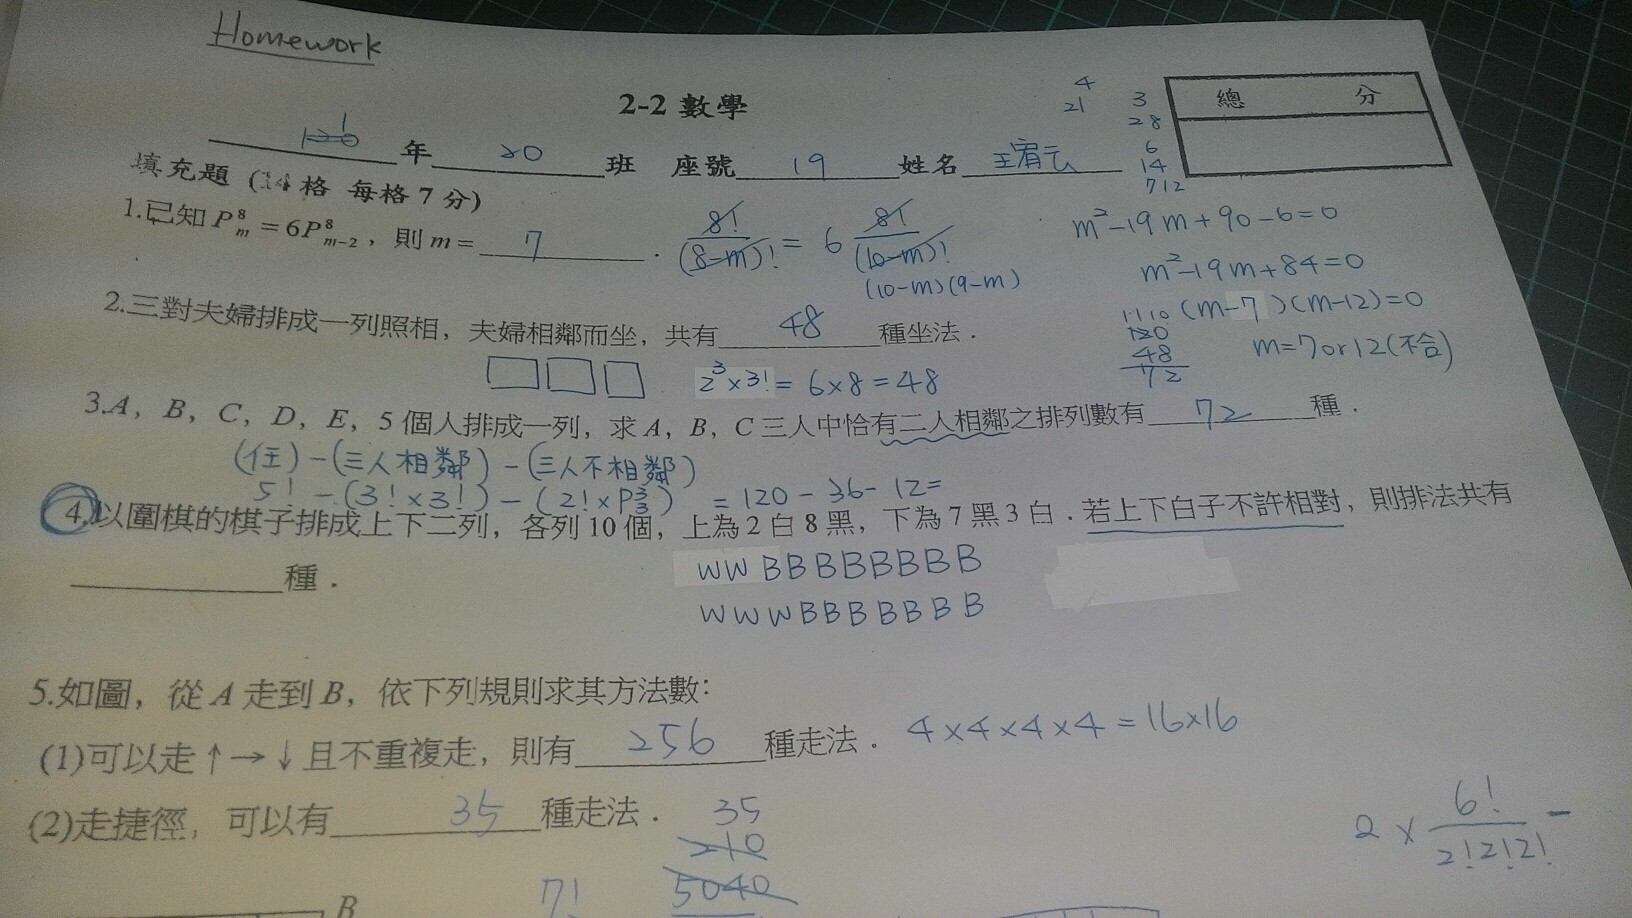 Homework
2-2 數學
總 分
4
21
3
28
6
14
712
年 20 班 座號 19 姓名
填充題 (14格 每格7分)
1.已知 P⁸ₘ = 6P⁸ₘ₋₂, 則 m = 7 .
8!/(8-m)! = 6 8!/(10-m)!
(10-m)(9-m)
m²-19m+90-6=0
m²-19m+84=0
(m-7)(m-12)=0
m=7or12(不合)
2.三對夫婦排成一列照相, 夫婦相鄰而坐, 共有 48 種坐法.
2³×3! = 6×8=48
120
48
72
3.A, B, C, D, E, 5個人排成一列, 求A, B, C三人中恰有二人相鄰之排列數有 72 種.
(任)-(三人相鄰)-(三人不相鄰)
5! -(3!×3!)-(2!×P³₃) =120-36-12=
4.以圍棋的棋子排成上下二列, 各列10個, 上為2白8黑, 下為7黑3白. 若上下白子不許相對, 則排法共有
種.
WWBBBBBBBB
WWWBBBBBBB
5.如圖, 從A走到B, 依下列規則求其方法數:
(1)可以走↑→↓且不重複走, 則有 256 種走法. 4×4×4×4=16×16
(2)走捷徑, 可以有 35 種走法.
35
210
5040
7!
2×6!/2!2!2! -
B